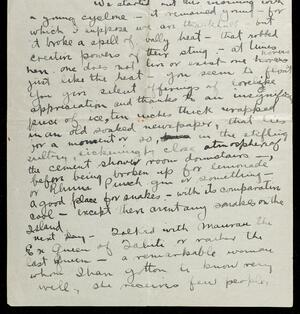 We started out this morning with
a young cyclone - it remained young - for
which I suppose we are thankful - but
it broke a spell of vally heat - that robbed
creation powers of their sting - at times
here one does not live or exist one hovers
just like the heat - you seem to float
you you select offerings of loveliest
appreciation and thanks to an insignificant
piece of ice, ten inches thick wrapped
in an old soaked newspaper, that lies
for a moment or so, in the stifling
sultry, sickening close atmosphere of
the cement shower room downstairs -,
before being broken up for lemonade
or Rhum Punch gin or something -
a good place for snakes - with its comparative
cool - except there arent any snakes on the
Island.
next day - Talked with Maurau the
Ex Queen of Tahiti or rather the
last Queen - a remarkable woman
whom I have gotton to know very
well, she receives few people,